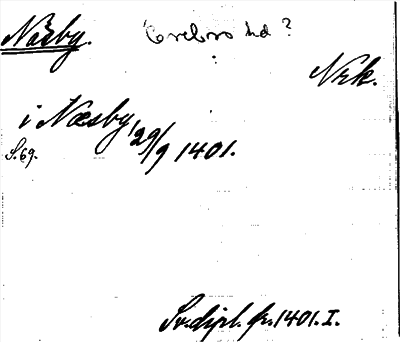 Näsby. Örebro hd?
Nrk.
i Næsby 29/9 1401.
S. 69.
Sv. dipl. fr. 1401. I.